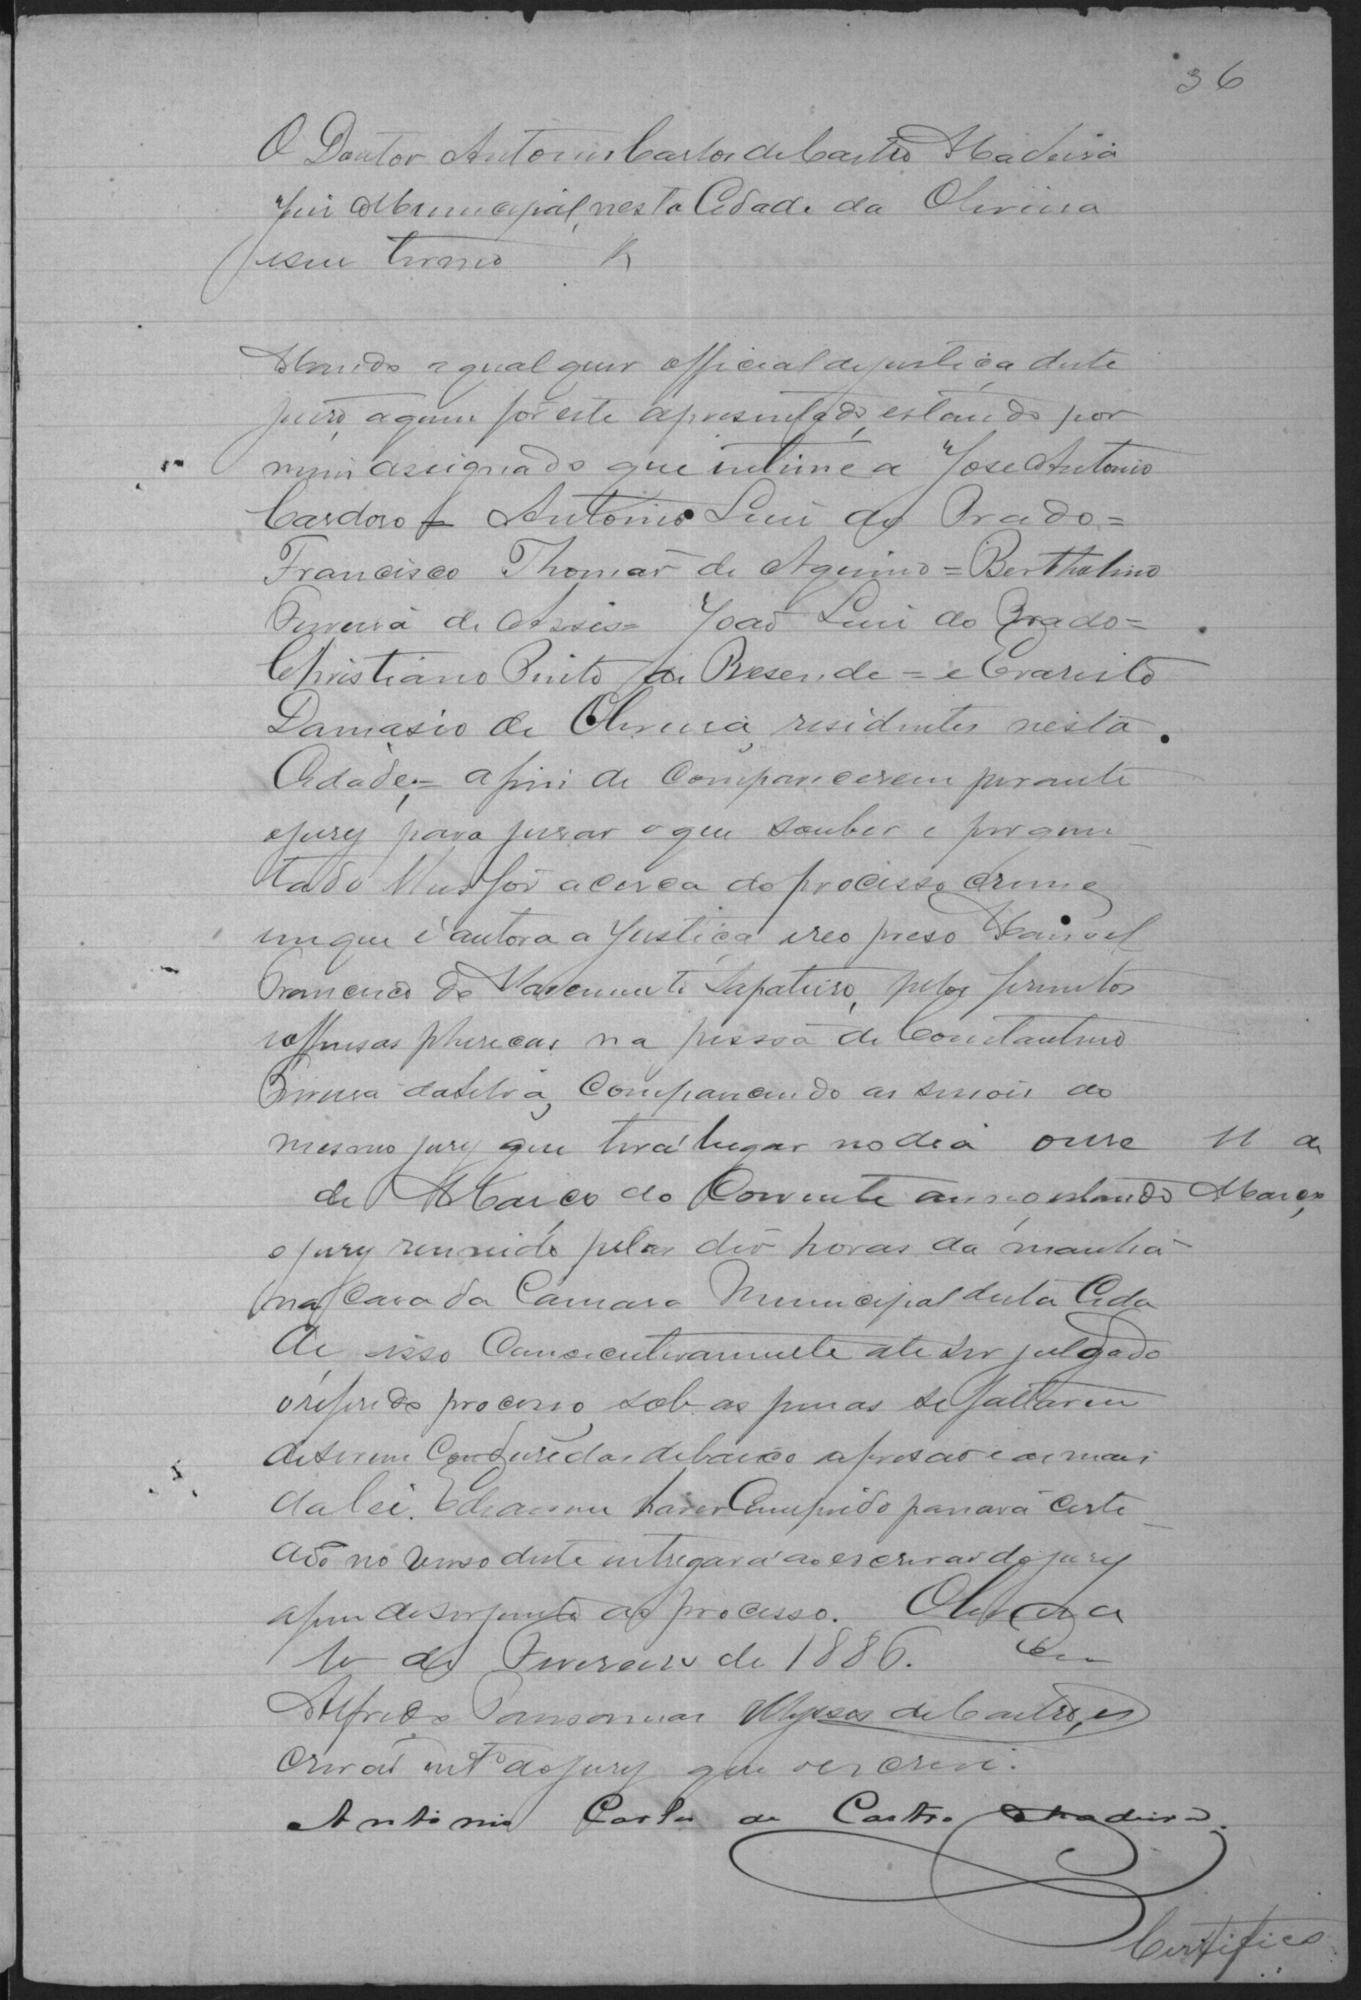 36
O Doutor Antonio Carlos de Castro Madeira
Juis Municipal, nesta Cidade da Oliveira
e seu termo &
Mando a qualquer official de justiça deste
juiso, a quem for este apresentado, estando por
mim assignado que intime a Jose Antonio
Cardoso = Antonio Luis do Prado =
Francisco Thomas de Aquino = Bertholino
Ferreira de Assis = João Luis do Prado =
Christiano Pinto de Resende = e Evaristo
Damasio de Oliveira, residentes nesta
Cidade; = a fim de comparecerem perante
o jury para jurar o que souber e pergun-
tado lhes for acerca do processo crime
em que é autora a Justiça e reo preso Manoel
Francisco do Nascimento Sapateiro, pelos ferimentos
e offensas phisicas na pessoa de Constantino
Pereira da Silva, comparecendo as sessões do
mesmo jury que terá lugar no dia onse 11 de
de Março do Corrente anno estando Março
o jury reunido pelas dés horas da manhã
na Casa da Camara Municipal desta Cida
de, isso consecutivamente ate ser julgado
o referido processo, sob as penas se faltarem
de serem condusidas debaixo a prisão e as mais
da lei. E de assim haver Cumprido passará certi-
dão no verso deste entregará ao escrivão do jury
a fim de ser junto ao processo. Oliveira
10 de Fevereiro de 1886. Eu
Alfredo Ulysses de Castro, es
crivão int.º do jury que o escrevi.
Antonio Carlos de Castro Madeira.
Certifico